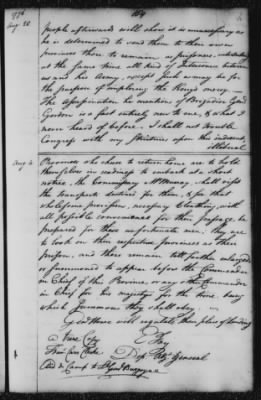 184
Aug. 20
people afterwards will show it is unnecessary as
he is determined to send them to their own
provinces there to remain as prisoners, interdicting
at the same time all kind of Intercourse between
us and his Army, except such as may be for
the purpose of employing the King's mercy. —
The assassination he mentions of Brigadier Genl
Gordon is a fact entirely new to me, & what I
never heard of before. I shall not trouble
Congress with my strictures upon this indecent,
illiberal
Aug. 4
Prisoners who chuse to return home are to hold
themselves in readiness to embark at a short
notice; the Commissary Mr. Murray shall visit
the transports destined for them, & see that
wholesome provisions, necessary Cloathing, with
all possible conveniences for their passage, be
prepared for these unfortunate men; they are
to look on their respective provinces as their
prison, and there remain till further enlarged
or summoned to appear before the Commander
in Chief of this Province, or any other Commander
in Chief for his Majesty for the time being
which Summons they shall obey. —
Howe will regulate their place of landing
a True Copy
Dep. Adjt. General
Aid de Camp to Burgoyne